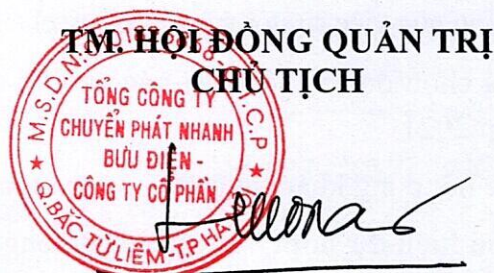 TM. HỘI ĐỒNG QUẢN TRỊ
CHỦ TỊCH
M.S.D.N: C.T.C.P
TỔNG CÔNG TY
CHUYỂN PHÁT NHANH
BƯU ĐIỆN -
CÔNG TY CỔ PHẦN
Q.BẮC TỪ LIÊM-T.P HÀ